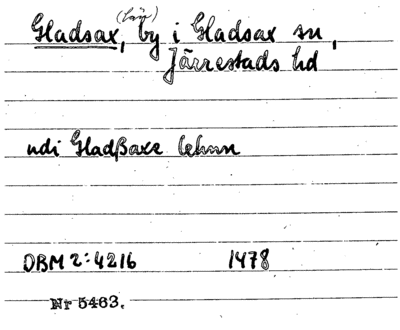 (län)
Gladsax, by i Gladsax sn,
Järrestads hd
udi Gladßaxe lehnn
DBM 2:4216 1478
Nr 5463.